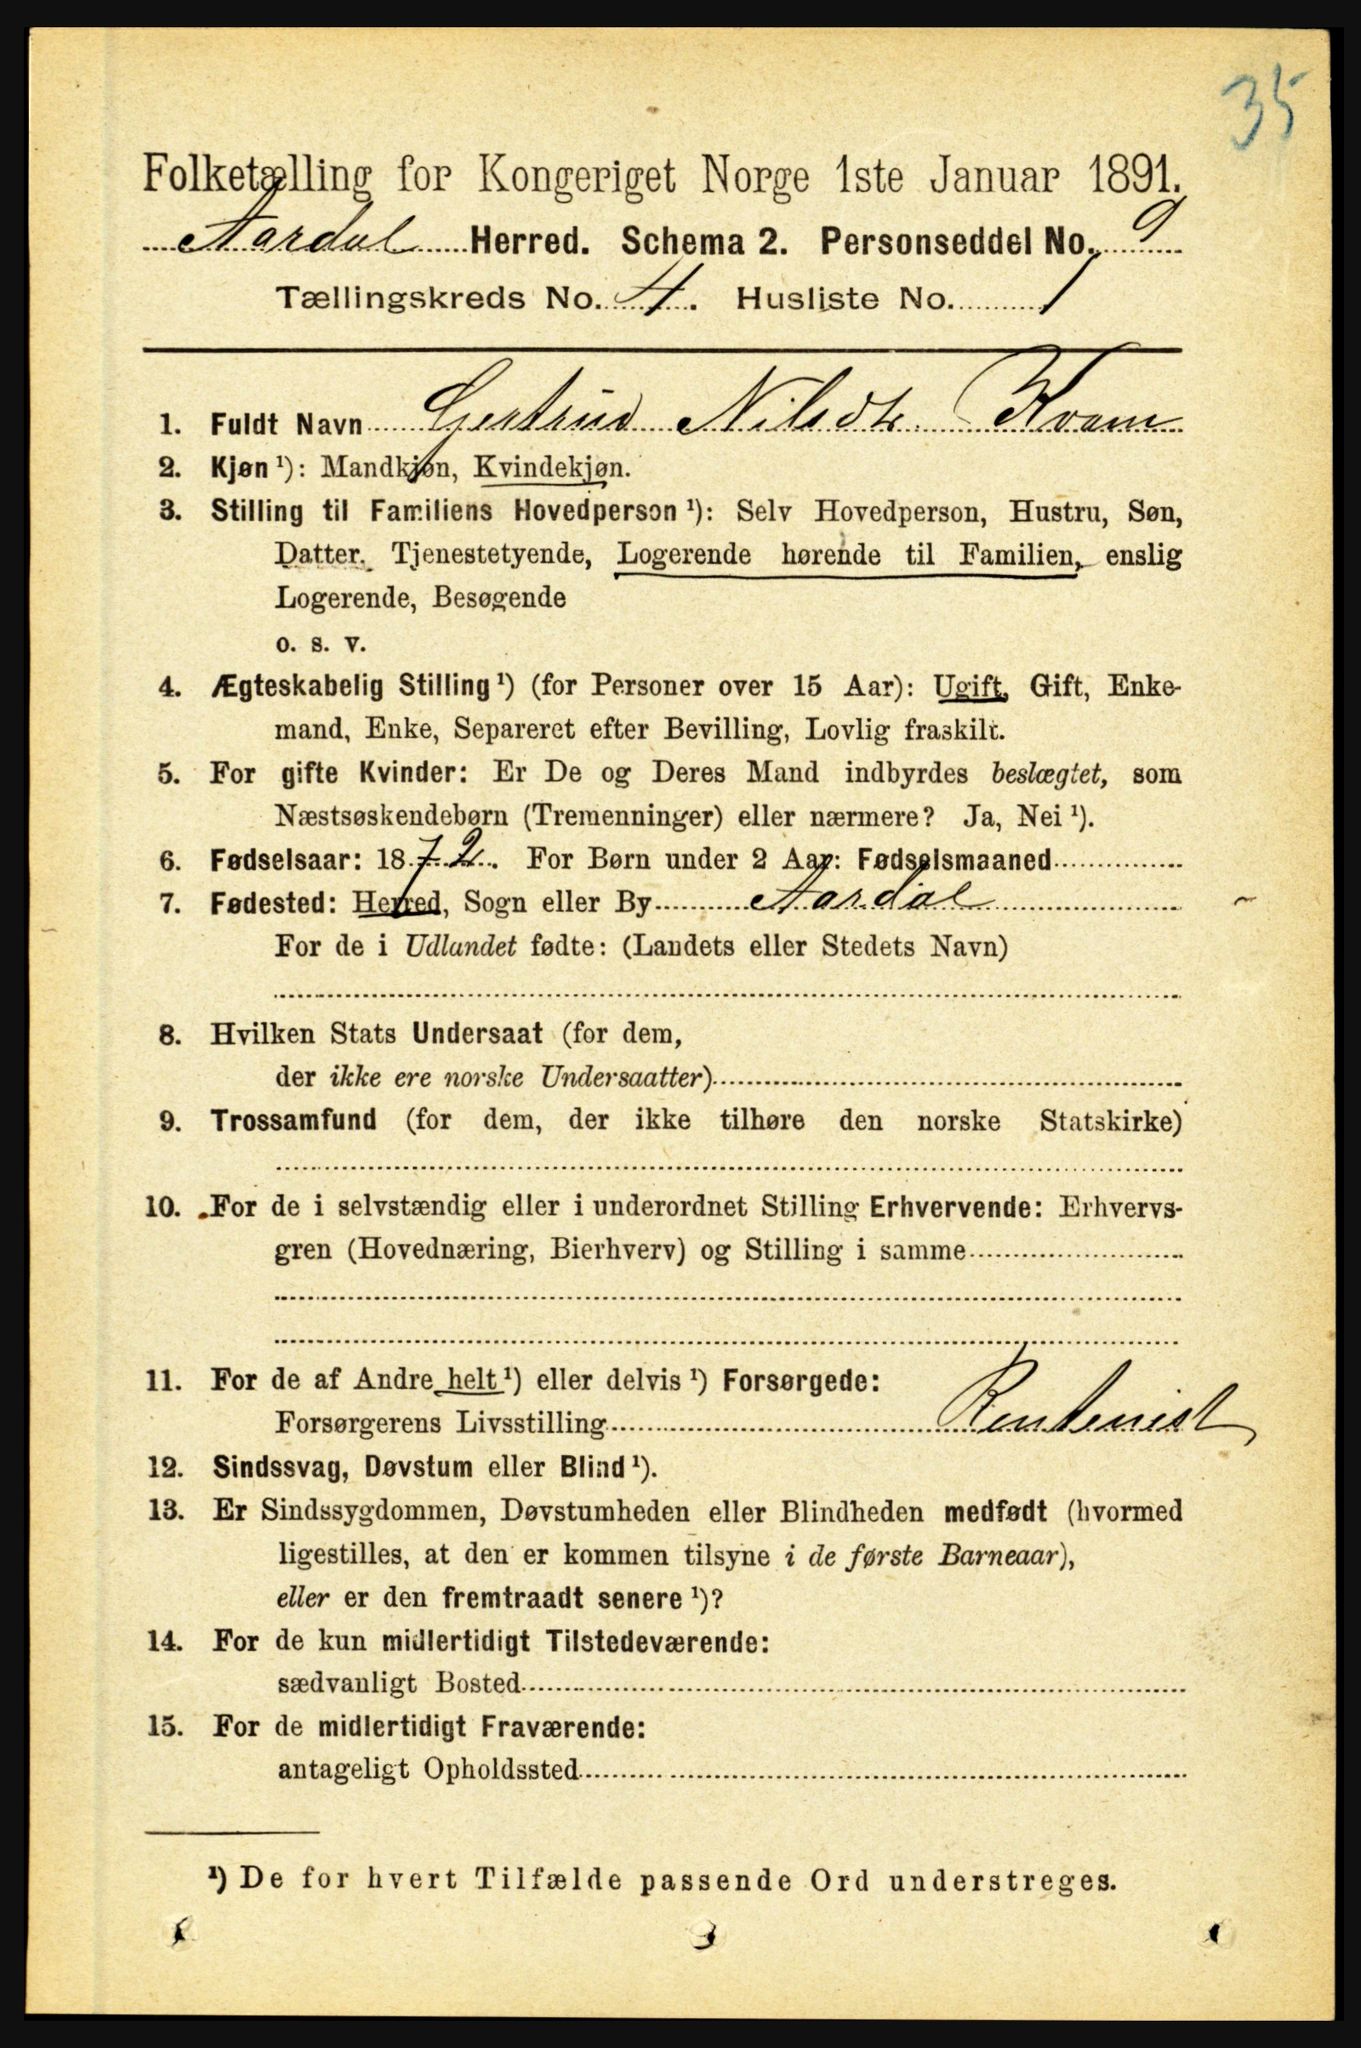 35
Folketælling for Kongeriget Norge 1ste Januar 1891.
Aardal Herred. Schema 2. Personseddel No. 9
Tællingskreds No. 4. Husliste No. 1
1. Fuldt Navn Gertrud Nilsdtr Kvam
2. Kjøn ¹): Mandkjøn, Kvindekjøn.
3. Stilling til Familiens Hovedperson ¹): Selv Hovedperson, Hustru, Søn,
Datter, Tjenestetyende, Logerende hørende til Familien, enslig
Logerende, Besøgende
o. s. v.
4. Ægteskabelig Stilling ¹) (for Personer over 15 Aar): Ugift, Gift, Enke-
mand, Enke, Separeret efter Bevilling, Lovlig fraskilt.
5. For gifte Kvinder: Er De og Deres Mand indbyrdes beslægtet, som
Næstsøskendebørn (Tremenninger) eller nærmere? Ja, Nei ¹).
6. Fødselsaar: 1872. For Børn under 2 Aar: Fødselsmaaned
7. Fødested: Herred, Sogn eller By Aardal
For de i Udlandet fødte: (Landets eller Stedets Navn)
8. Hvilken Stats Undersaat (for dem,
der ikke ere norske Undersaatter)
9. Trossamfund (for dem, der ikke tilhøre den norske Statskirke)
10. For de i selvstændig eller i underordnet Stilling Erhvervende: Erhvervs-
gren (Hovednæring, Bierhverv) og Stilling i samme
11. For de af Andre helt ¹) eller delvis ¹) Forsørgede:
Forsørgerens Livsstilling Rentenist
12. Sindssvag, Døvstum eller Blind ¹).
13. Er Sindssygdommen, Døvstumheden eller Blindheden medfødt (hvormed
ligestilles, at den er kommen tilsyne i de første Barneaar),
eller er den fremtraadt senere ¹)?
14. For de kun midlertidigt Tilstedeværende:
sædvanligt Bosted
15. For de midlertidigt Fraværende:
antageligt Opholdssted
¹) De for hvert Tilfælde passende Ord understreges.